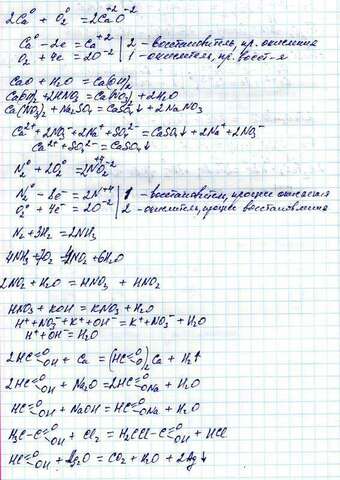 2Ca⁰ + O₂⁰ = 2Ca⁺²O⁻²
Ca⁰ - 2e = Ca⁺² | 2 - восстановитель, пр. окисления
O₂ + 4e = 2O⁻² | 1 - окислитель, пр. восст-я
CaO + H₂O = Ca(OH)₂
Ca(OH)₂ + 2HNO₃ = Ca(NO₃)₂ + 2H₂O
Ca(NO₃)₂ + Na₂SO₄ = CaSO₄↓ + 2NaNO₃
Ca²⁺ + 2NO₃⁻ + 2Na⁺ + SO₄²⁻ = CaSO₄↓ + 2Na⁺ + 2NO₃⁻
Ca²⁺ + SO₄²⁻ = CaSO₄↓
N₂⁰ + 2O₂⁰ = 2N⁺⁴O₂⁻²
N₂⁰ - 8e⁻ = 2N⁺⁴ | 1 - восстановитель, процесс окисления
O₂⁰ + 4e⁻ = 2O⁻² | 2 - окислитель, процесс восстановления
N₂ + 3H₂ = 2NH₃
4NH₃ + 7O₂ = 4NO₂ + 6H₂O
2NO₂ + H₂O = HNO₃ + HNO₂
HNO₃ + KOH = KNO₃ + H₂O
H⁺ + NO₃⁻ + K⁺ + OH⁻ = K⁺ + NO₃⁻ + H₂O
H⁺ + OH⁻ = H₂O
2HC=O OH + Ca = (HC=O O)₂Ca + H₂↑
2HC=O OH + Na₂O = 2HC=O ONa + H₂O
HC=O OH + NaOH = HC=O ONa + H₂O
H₃C-C=O OH + Cl₂ = H₂CCl-C=O OH + HCl
HC=O OH + Ag₂O = CO₂ + H₂O + 2Ag↓